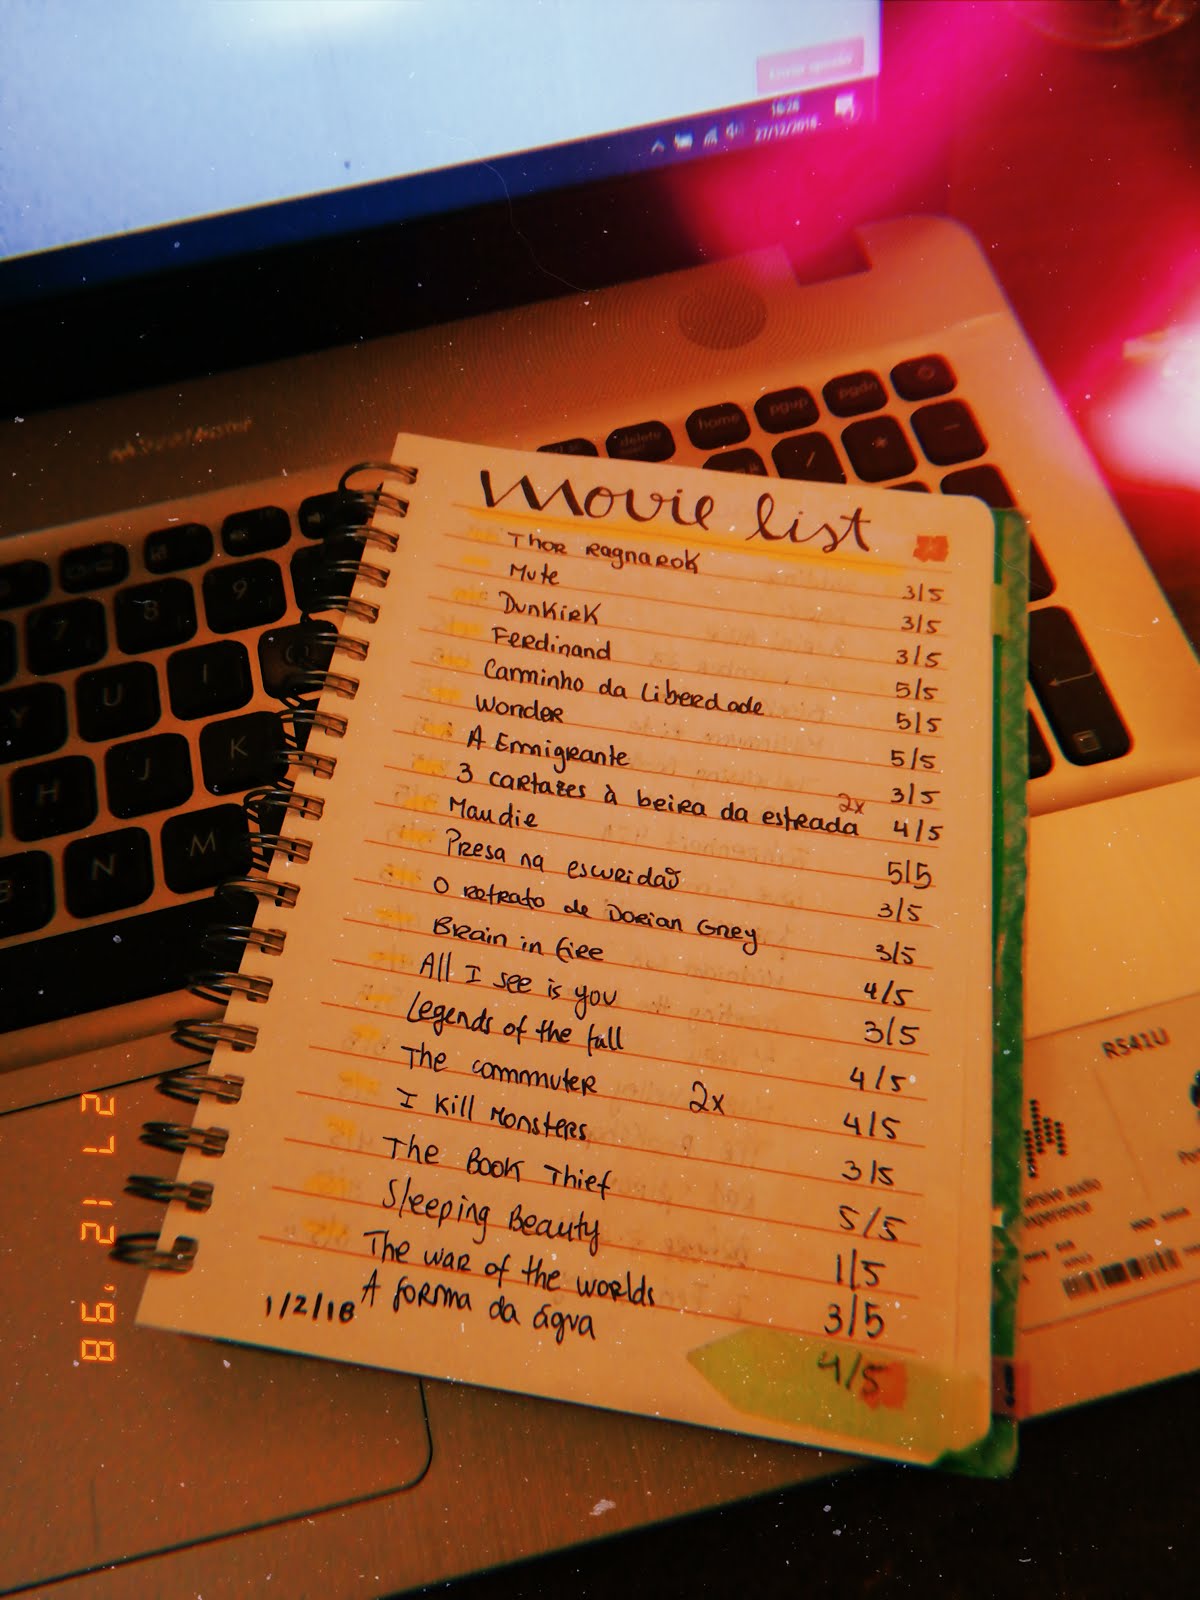 16:28
27/12/2018
delete
home
pgup
pgdn
7
8
9
/
*
-
Y
U
I
H
J
K
N
M
movie list
Thor Ragnarok 3/5
Mute 3/5
Dunkirk 3/5
Ferdinand 5/5
Carminho da Liberdade 5/5
Wonder 5/5
A Emmigrante 3/5
3 cartazes à beira da estrada 2x 4/5
Maudie 5/5
Presa na escuridão 3/5
O retrato de Dorian Grey 3/5
Brain in fire 4/5
All I see is you 3/5
Legends of the fall 4/5
The commuter 2x 4/5
I Kill Monsters 3/5
The Book Thief 5/5
Sleeping Beauty 1/5
The war of the worlds 3/5
A forma da água 4/5
1/2/18
R541U
audio
experience
27 12 '98